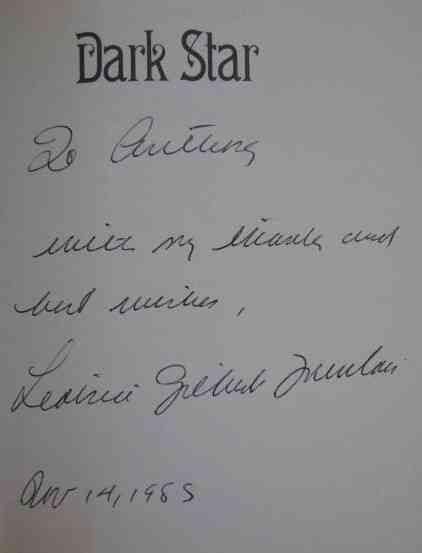 Dark Star
To Anthony
with my thanks and
best wishes,
Leatrice Gilbert Fountain
Nov 14, 1985